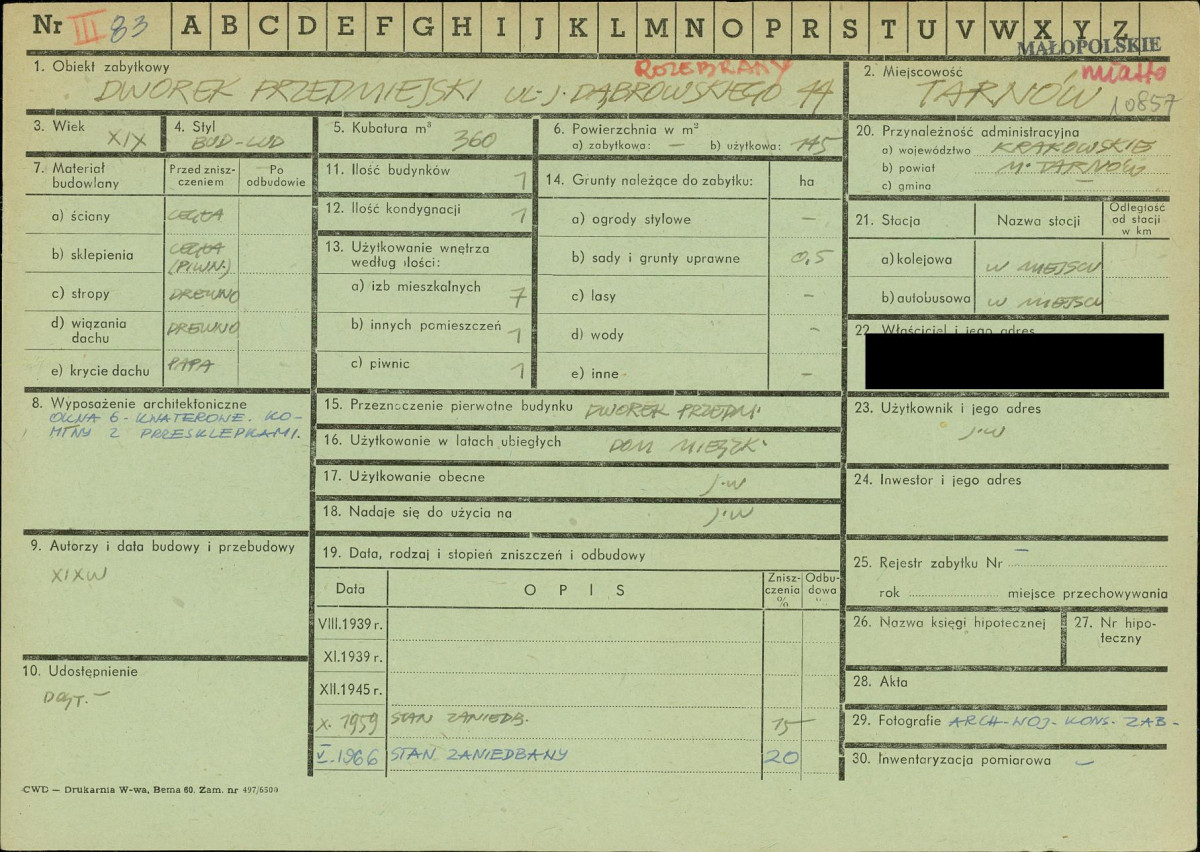 Nr III 83 A B C D E F G H I J K L M N O P R S T U V W X Y Z
MAŁOPOLSKIE
1. Obiekt zabytkowy
ROZEBRANY
DWOREK PRZEDMIEJSKI UL. J. DĄBROWSKIEGO 44
2. Miejscowość
miasto
TARNÓW 10857
3. Wiek XIX
4. Styl
BUD-LUD
5. Kubatura m³ 360
6. Powierzchnia w m²
a) zabytkowa: — b) użytkowa: 145
7. Materiał budowlany
Przed zniszczeniem
Po odbudowie
a) ściany CEGŁA
b) sklepienia CEGŁA
(PIWN.)
c) stropy DREWNO
d) wiązania dachu DREWNO
e) krycie dachu PAPA
8. Wyposażenie architektoniczne
OKNA 6-KWATEROWE. KO-
MINY Z PRZESKLEPKAMI.
9. Autorzy i data budowy i przebudowy
XIX W
10. Udostępnienie
DOST. —
11. Ilość budynków 1
12. Ilość kondygnacji 1
13. Użytkowanie wnętrza
według ilości:
a) izb mieszkalnych 7
b) innych pomieszczeń 1
c) piwnic 1
14. Grunty należące do zabytku: ha
a) ogrody stylowe —
b) sady i grunty uprawne 0,5
c) lasy —
d) wody —
e) inne —
15. Przeznaczenie pierwotne budynku DWOREK PRZEDM.
16. Użytkowanie w latach ubiegłych DOM MIESZK.
17. Użytkowanie obecne j.w
18. Nadaje się do użycia na j.w
19. Data, rodzaj i stopień zniszczeń i odbudowy
Data
OPIS
Zniszczenia %
Odbudowa %
VIII.1939 r.
XI.1939 r.
XII.1945 r.
X. 1959 STAN ZANIEDB. 15
V. 1966 STAN ZANIEDBANY 20
20. Przynależność administracyjna
a) województwo KRAKOWSKIE
b) powiat M. TARNÓW
c) gmina —
21. Stacja
Nazwa stacji
Odległość od stacji w km
a) kolejowa W MIEJSCU
b) autobusowa W MIEJSCU
22. Właściciel i jego adres
23. Użytkownik i jego adres
j.w
24. Inwestor i jego adres
25. Rejestr zabytku Nr —
rok miejsce przechowywania
26. Nazwa księgi hipotecznej
27. Nr hipo-
teczny
28. Akta
29. Fotografie ARCH. WOJ. KONS. ZAB.
30. Inwentaryzacja pomiarowa —
CWD — Drukarnia W-wa, Bema 60. Zam. nr 497/6500